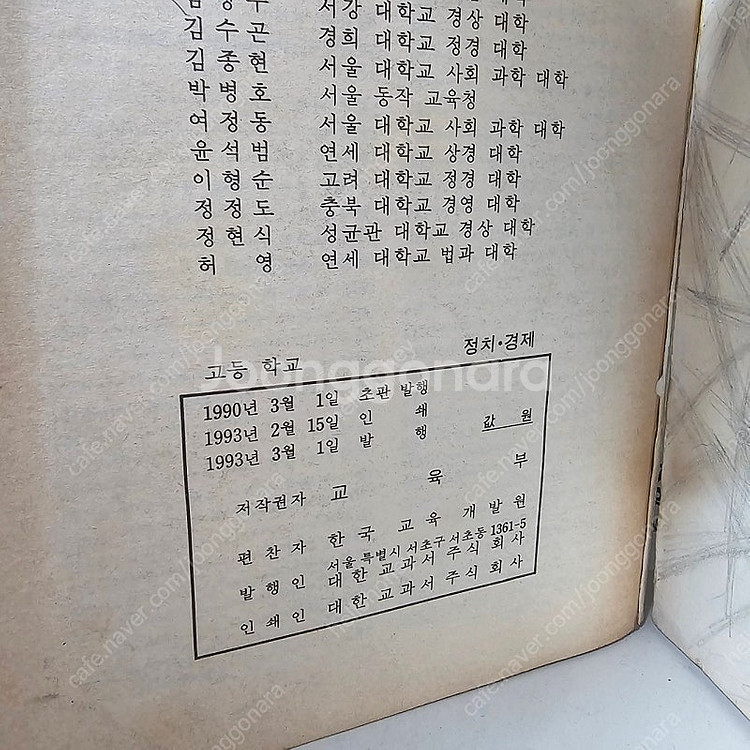 수 서강 대학교 경상 대학
김 수 곤 경희 대학교 정경 대학
김 종 현 서울 대학교 사회 과학 대학
박 병 호 서울 동작 교육청
여 정 동 서울 대학교 사회 과학 대학
윤 석 범 연세 대학교 상경 대학
이 형 순 고려 대학교 정경 대학
정 정 도 충북 대학교 경영 대학
정 현 식 성균관 대학교 경상 대학
허 영 연세 대학교 법과 대학
고등 학교 정치·경제
1990년 3월 1일 초판 발행
1993년 2월 15일 인 쇄
1993년 3월 1일 발 행 값 원
저작권자 교 육 부
편 찬 자 한 국 교 육 개 발 원
서울 특별시 서초구 서초동 1361-5
발 행 인 대 한 교 과 서 주 식 회 사
인 쇄 인 대 한 교 과 서 주 식 회 사
joonggonara
cafe.naver.com/joonggonara